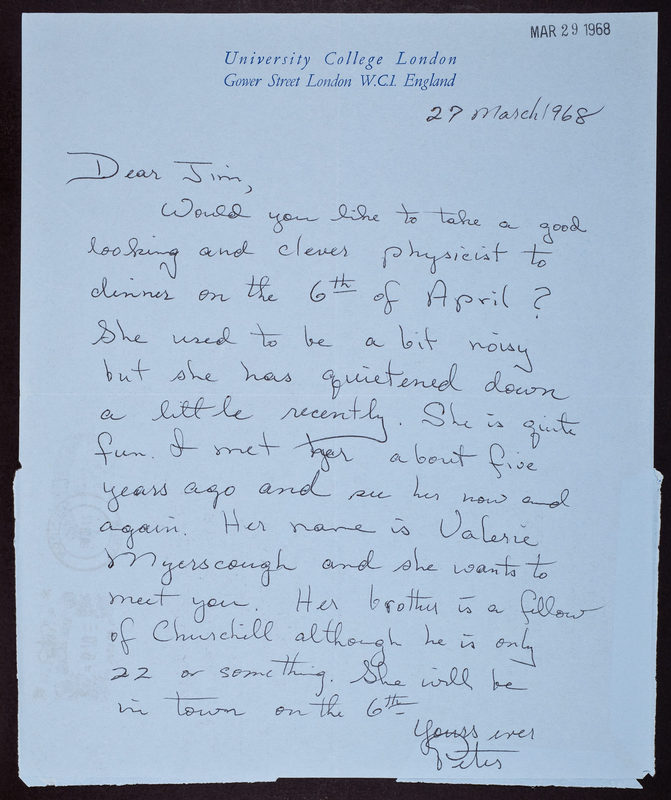 MAR 29 1968
University College London
Gower Street London W.C.1. England
27 March 1968
Dear Jim,
Would you like to take a good
looking and clever physicist to
dinner on the 6th of April?
She used to be a bit noisy
but she has quietened down
a little recently. She is quite
fun. I met her about five
years ago and see her now and
again. Her name is Valerie
Myerscough and she wants to
meet you. Her brother is a fellow
of Churchill although he is only
22 or something. She will be
in town on the 6th
Yours ever
Peter